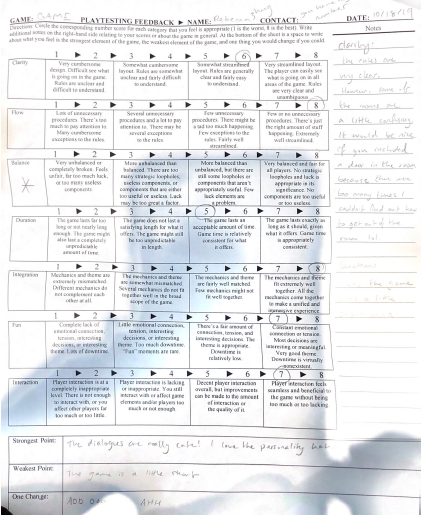 GAME: GAME PLAYTESTING FEEDBACK ► NAME: CONTACT DATE: 10/18/19
Directions: Circle the corresponding number score for each category that you feel is appropriate (1 is the worst, 8 is the best). Write
additional notes on the right-hand side relating to your scores or about the game in general. At the bottom of the sheet is a space to write
about what you feel is the strongest element of the game, the weakest element of the game, and one thing you would change if you could.
Notes
1 ► 2 ► 3 ► 4 ► 5 ► 6 ► 7 ► 8
Clarity
Very cumbersome design. Difficult see what is going on in the game. Rules are unclear and difficult to understand.
Somewhat cumbersome layout. Rules are somewhat unclear and fairly difficult to understand.
Somewhat streamlined layout. Rules are generally clear and fairly easy to understand.
Very streamlined layout. The player can easily see what is going on in all areas of the game. Rules are very clear and unambiguous.
1 ► 2 ► 3 ► 4 ► 5 ► 6 ► 7 ► 8
Flow
Lots of unnecessary procedures. There's too much to pay attention to. Many cumbersome exceptions to the rules.
Several unnecessary procedures and a lot to pay attention to. There may be several exceptions to the rules.
Few unnecessary procedures. There might be a tad too much happening. Few exceptions to the rules. Fairly well streamlined.
Few or no unnecessary procedures. There's just the right amount of stuff happening. Extremely well-streamlined.
1 ► 2 ► 3 ► 4 ► 5 ► 6 ► 7 ► 8
Balance
Very unbalanced or completely broken. Feels unfair, far too much luck, or too many useless components.
More unbalanced than balanced. There are too many strategic loopholes, useless components, or components that are either too useful or useless. Luck may be too great a factor.
More balanced than unbalanced, but there are still some loopholes or components that aren't appropriately useful. Few luck elements are a problem.
Very balanced and fair for all players. No strategic loopholes and luck is appropriate in its significance. No components are too useful or too useless.
1 ► 2 ► 3 ► 4 ► 5 ► 6 ► 7 ► 8
Duration
The game lasts far too long or not nearly long enough. The game might also last a completely unpredictable amount of time.
The game does not last a satisfying length for what it offers. The game might still be too unpredictable in length.
The game lasts an acceptable amount of time. Game time is relatively consistent for what it offers.
The game lasts exactly as long as it should, given what it offers. Game time is appropriately consistent.
1 ► 2 ► 3 ► 4 ► 5 ► 6 ► 7 ► 8
Integration
Mechanics and theme are extremely mismatched. Different mechanics do not complement each other at all.
The mechanics and theme are somewhat mismatched. Several mechanics do not fit together well in the broad scope of the game.
The mechanics and theme are fairly well matched. Few mechanics might not fit well together.
The mechanics and theme fit extremely well together. All the mechanics come together to make a unified and immersive experience.
1 ► 2 ► 3 ► 4 ► 5 ► 6 ► 7 ► 8
Fun
Complete lack of emotional connection, tension, interesting decisions, or interesting theme. Lots of downtime.
Little emotional connection, tension, interesting decisions, or interesting theme. Too much downtime. "Fun" moments are rare.
There's a fair amount of connection, tension, and interesting decisions. The theme is appropriate. Downtime is relatively low.
Constant emotional connection or tension. Most decisions are interesting or meaningful. Very good theme. Downtime is virtually nonexistent.
1 ► 2 ► 3 ► 4 ► 5 ► 6 ► 7 ► 8
Interaction
Player interaction is at a completely inappropriate level. There is not enough to interact with, or you affect other players far too much or too little.
Player interaction is lacking or inappropriate. You still interact with or affect game elements and/or players too much or not enough.
Decent player interaction overall, but improvements can be made to the amount of interaction or the quality of it.
Player interaction feels seamless and beneficial to the game without being too much or too lacking.
clarity:
the rules are
very clear.
However, some of
the rooms are
a little confusing.
It would be nice
if you included
a door in the room
because
many times I
couldn't find out how
to get out of the
room
the game
Strongest Point: The dialogues are really cute! I love the personality
Weakest Point: The game is a little short
One Change: ADD